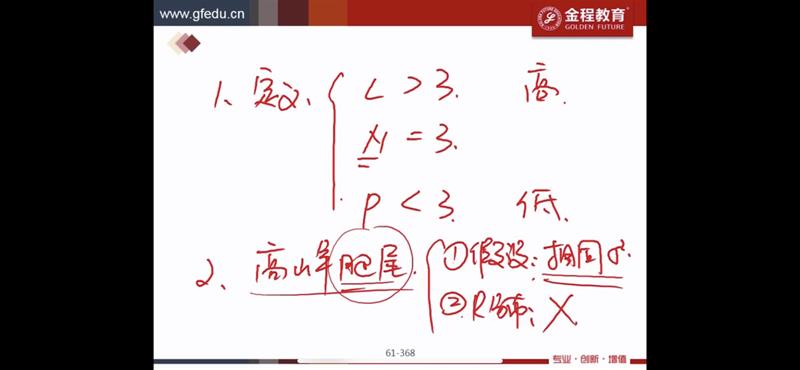 www.gfedu.cn
金程教育
GOLDEN FUTURE
1、定义、
L > 3. 高.
M = 3.
P < 3. 低.
2、高山羊肥尾.
①假设: 相同σ².
②R分布: X
61-368
专业·创新·增值